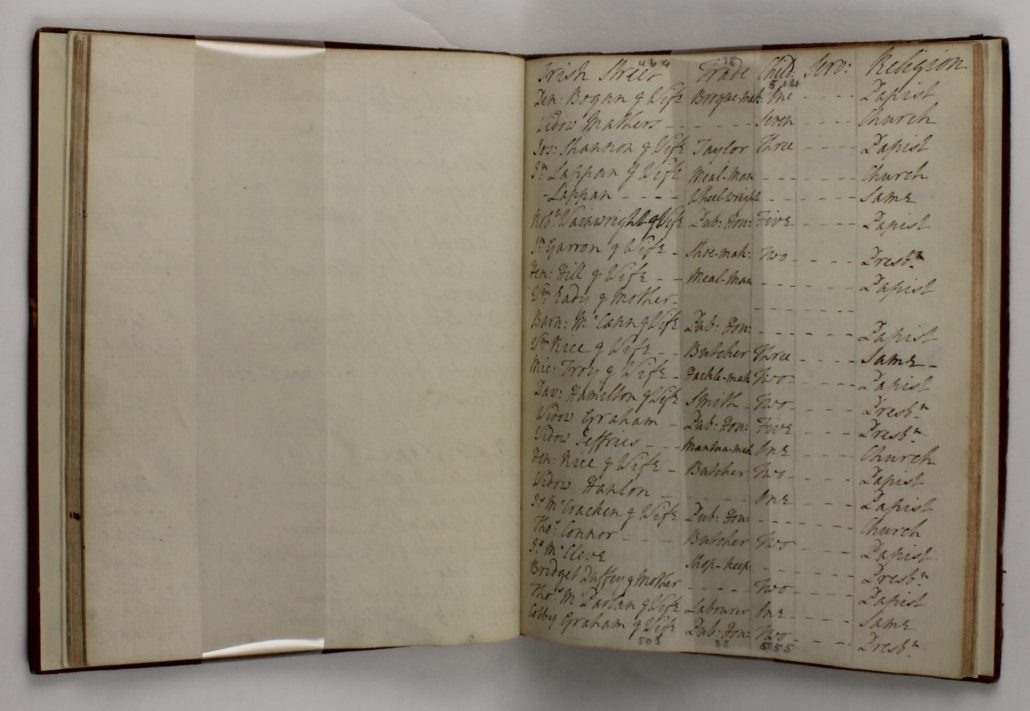 464 18 514
Irish Street Trade Child: Serv: Religion
Den: Bogan & Wife Brogue-mak: One - - - - Papist
Widow Mathers - - - - - - Seven - - - - Church
Jos: Shannon & Wife Taylor Three - - - - Papist
Jn Lappan & Wife Meal-Man - - - - Church
- Lappan - - - - Wheel-wright - - - - Same
Robt Wainwright & Wife Pub: Hou: Five - - - - Papist
Jn Garron & Wife - Shoe-mak: Two - - - - Presbn
Hen: Hill & Wife - - Meal-Man - - - - Papist
Wm Eady & Mother -
Barn: McCann & Wife Pub: Hou: - - - - Papist
Wm Rice & Wife - - Butcher Three - - - - Same -
Mic: Troy & Wife - Hackle-mak Two - - - - Papist
Dav: Hamilton & Wife Smith - Two - - - - Presbn
Widow Graham - Pub: Hou: Five - - - - Presbn
Widow Jeffries - - - Mantua-mak One - - - - Church
Hen: Rice & Wife - Butcher Two - - - - Papist
Widow Hanlon - - - - - - One - - - - Papist
Jo McCracken & Wife Pub: Hou: - - - - Church
Thos Connor - - - - Butcher Two - - - - Papist
Jo McCleve Shop-keep: - - - - Presbn
Bridget Duffey & Mother - - - - Two - - - - Papist
Thos McParlan & Wife Labourer One - - - - Same
Cobby Graham & Wife Pub: Hou: Two - - - - Presbn
555